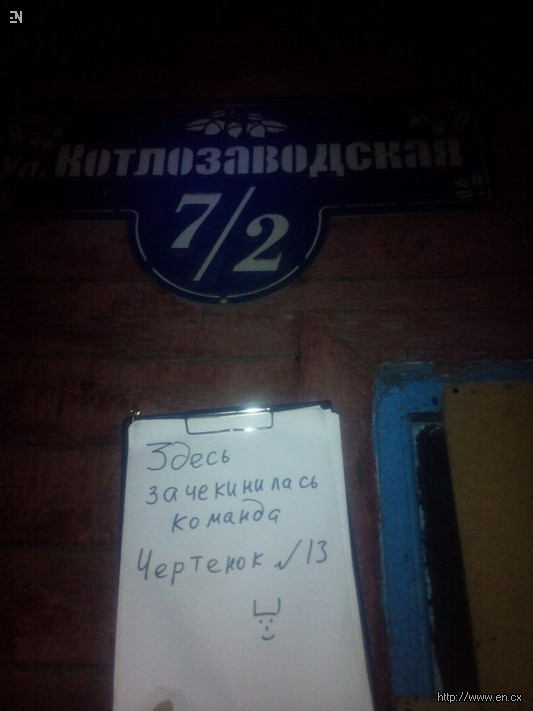 EN
Ул. Котлозаводская
7/2
Здесь
зачекинилась
команда
Чертенок √13
http://www.en.cx